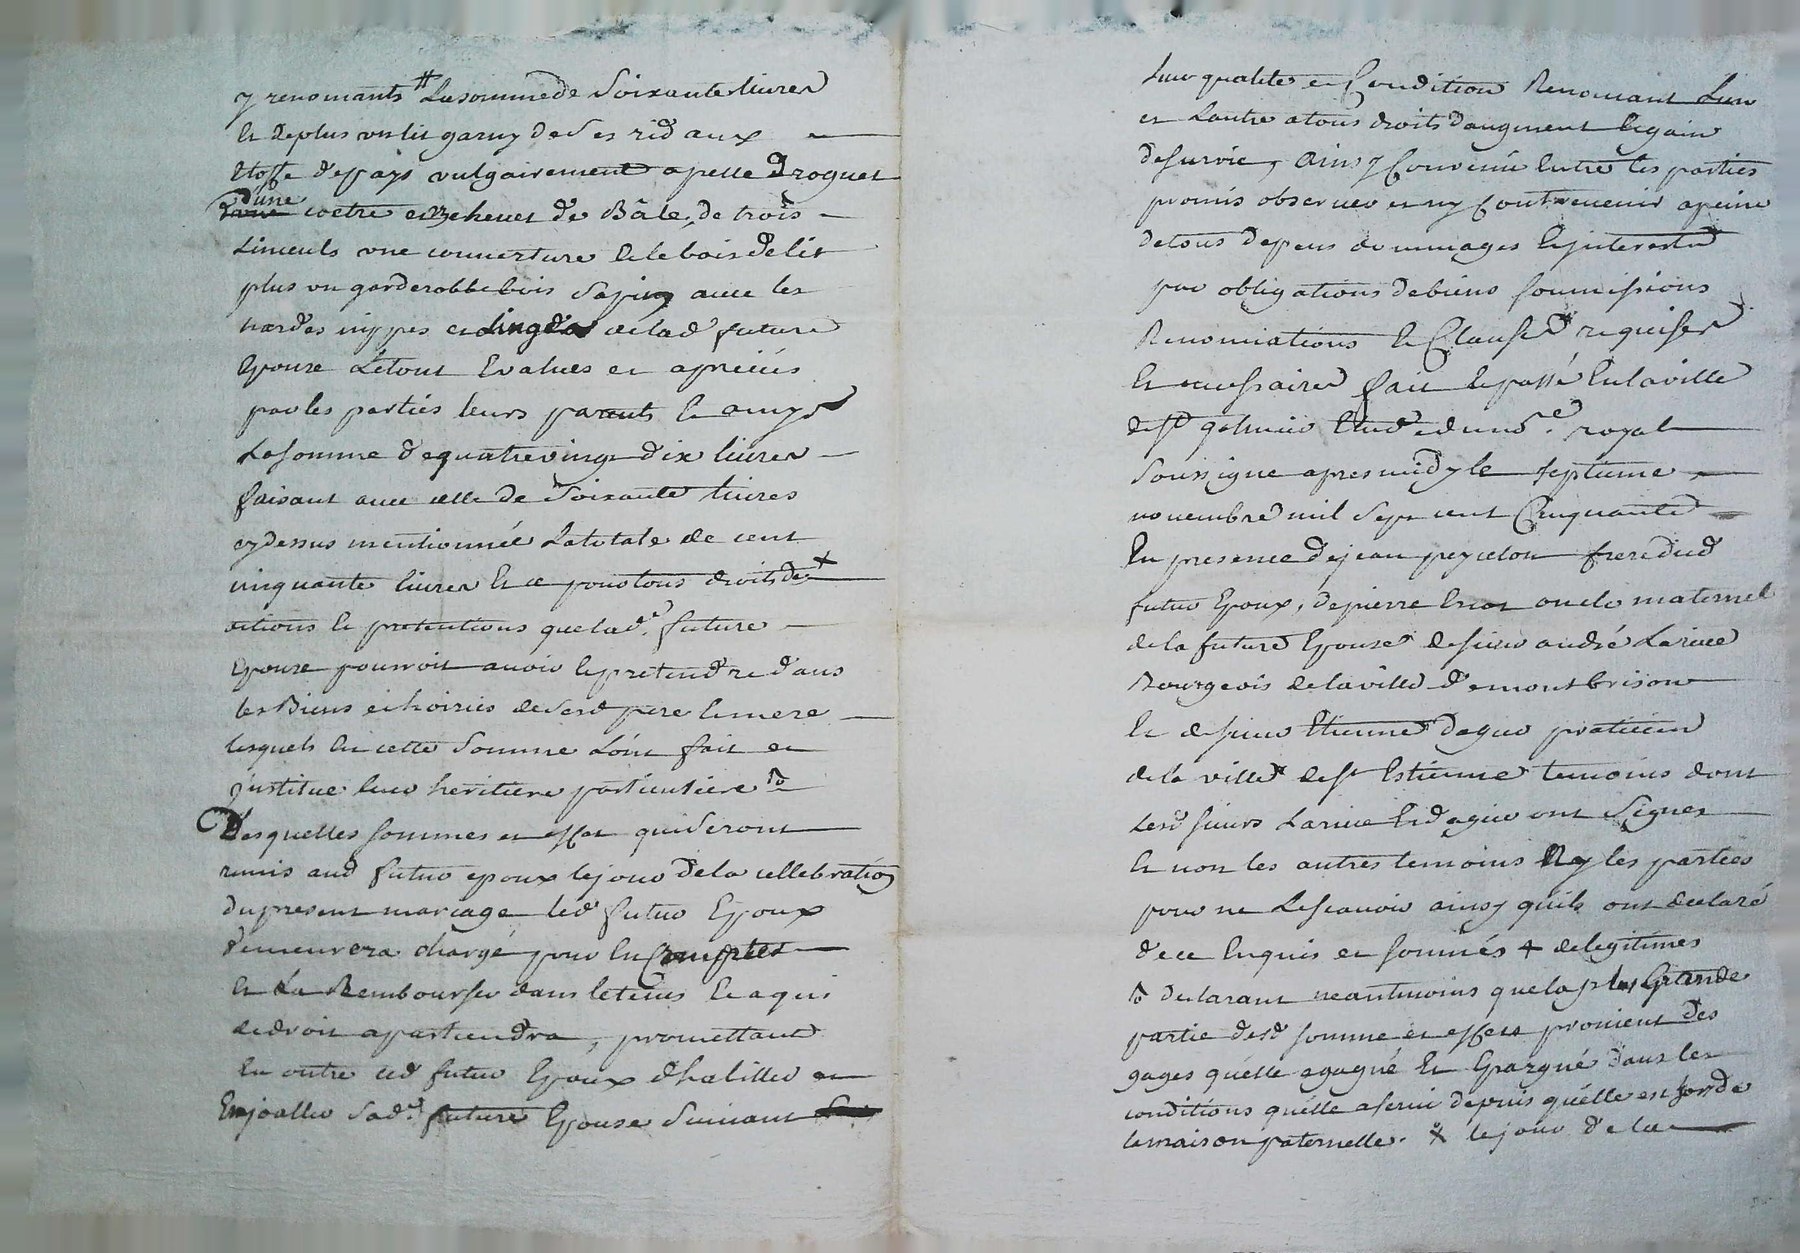 y renonçants # La somme de Soixante livres
Et Deplus un lit garny de Ses ridaux
Etoffe depays vulgairement apellé Droguet
d'une coetre et chevet de Bâle, de trois
Linceuls une couverture et le bois de lit
plus un garderobbe bois Sapin avec les
hardes nippes et linges de lad future
Epouse Letout Evalués et apréciés
par les parties leurs parents et amys
La somme de quatre vingt dix livres
faisant avec celle de Soixante livres
cydessus mentionnée La totale de cent
cinquante livres Et ce pour tous droits de x
actions et pretentions que lad.e future
Epouse pourroit avoir et pretendre dans
les Biens et hoiries de Sesd pere et mere
lesquels En cette Somme L'ont fait et
institué leur heritiere particuliere
Desquelles sommes et effet qui Seront
remis aud futur epoux le jour de la cellebration
du present mariage led futur Epoux
demeurera chargé pour En Compter
Et La Rembourser dans le tems Et a qui
de droit apartiendra, promettant
En outre led futur Epoux d'habiller et
Enjoaller Sad.e future Epouse Suivant
Leur qualité et Condition Renonçant L'un
et L'autre a tous droits d'augment et gain
de survie, Ainsy Convenu Entre les parties
promis observer et ny Contrevenir a peine
de tous depens dommages et interests
par obligations de biens soumissions
Renonciations et Clauses requises
Et necessaires fait et passé En la ville
de st galmier Etude du no.re royal
Soussigné apres midy le septieme
novembre mil Sept cent Cinquante
En presence de jean peyceton frere dud
futur Epoux, de pierre oncle maternel
de la future Epouse de sieur andré Larive
Bourgeois de la ville de montbrison
Et de sieur Etienne daguer praticien
de la ville de st Estienne temoins dont
Lesd sieurs Larive Et daguer ont Signés
Et non les autres temoins Ny les parties
pour ne Le scavoir ainsy qu'ils ont declaré
de ce Enquis et sommés + de legitimes
declarant neantmoins que la plus Grande
partie desd somme et effets provient des
gages qu'elle agagné Et Epargné dans les
conditions qu'elle a servi depuis qu'elle est hors de
la maison paternelle. x le jour de la